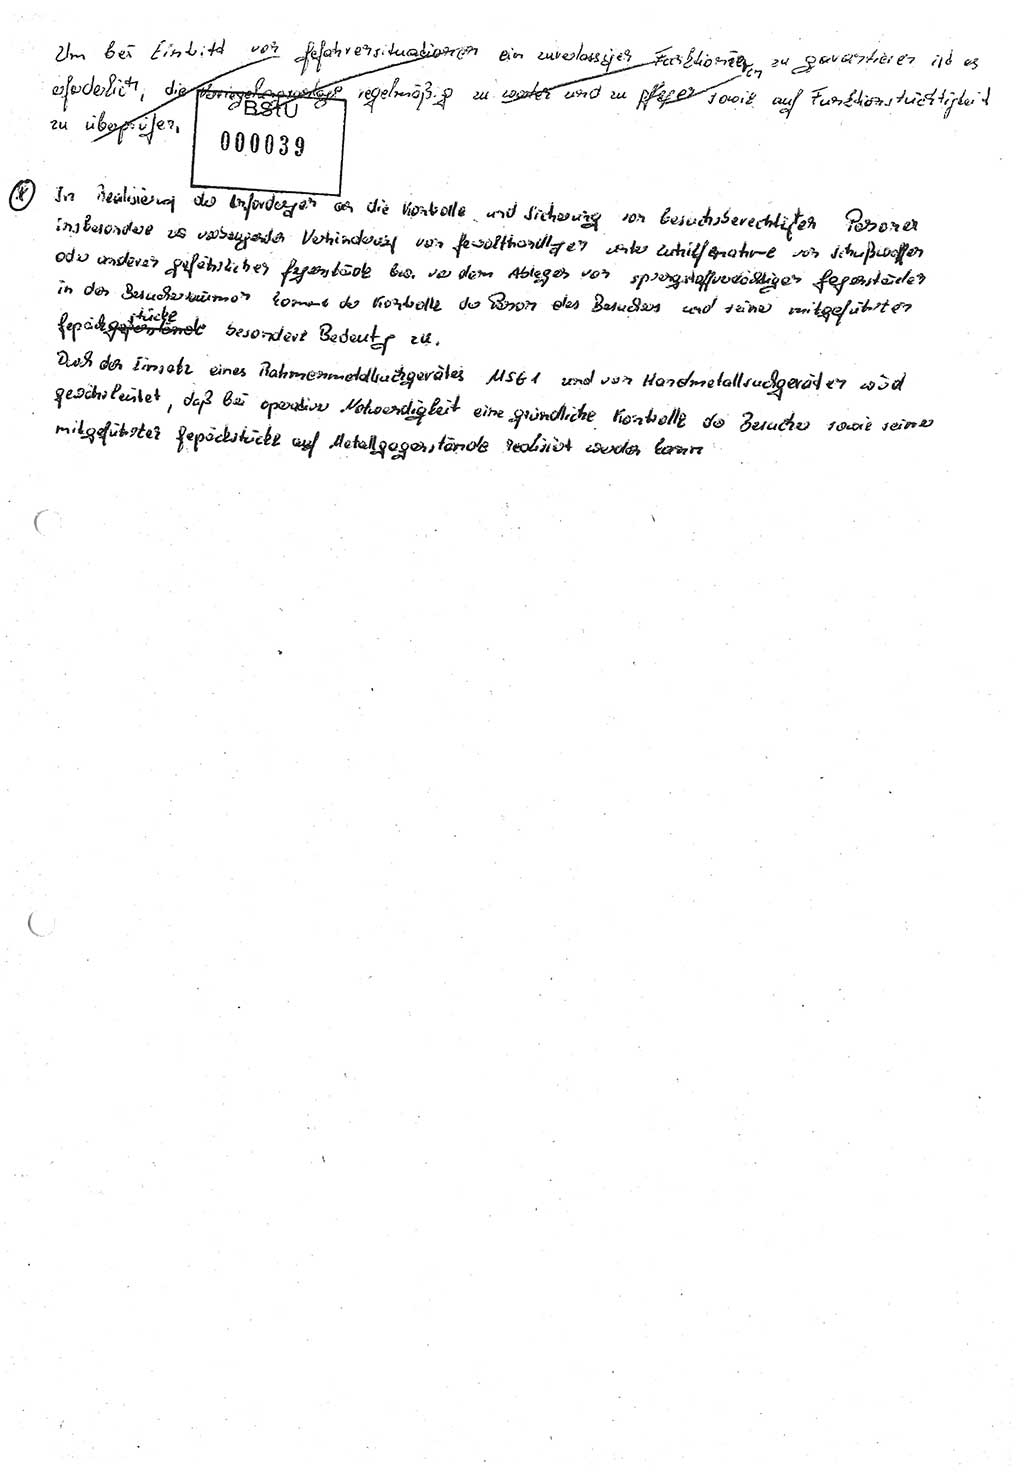 Um bei Eintritt von Gefahrensituationen ein zuverlässiges Funktionieren zu garantieren ist es
erforderlich, die Verriegelungsanlage regelmäßig zu warten und zu pflegen sowie auf Funktionstüchtigkeit
zu überprüfen.
BStU
000039
In Realisierung der Anforderungen an die Kontrolle und Sicherung von besuchsberechtigten Personen
insbesondere zur vorbeugenden Verhinderung von Gewalthandlungen unter Zuhilfenahme von Schußwaffen
oder anderen gefährlichen Gegenstände bzw. vor dem Ablegen von sprengstoffverdächtigen Gegenständen
in den Besucherräumen kommt der Kontrolle der Person des Besuchers und seiner mitgeführten
stücke
Gepäckgegenstände besondere Bedeutung zu.
Durch den Einsatz eines Rahmenmetallsuchgerätes MSG1 und von Handmetallsuchgeräten wird
gewährleistet, daß bei operativer Notwendigkeit eine gründliche Kontrolle der Besucher sowie seiner
mitgeführten Gepäckstücke auf Metallgegenstände realisiert werden kann